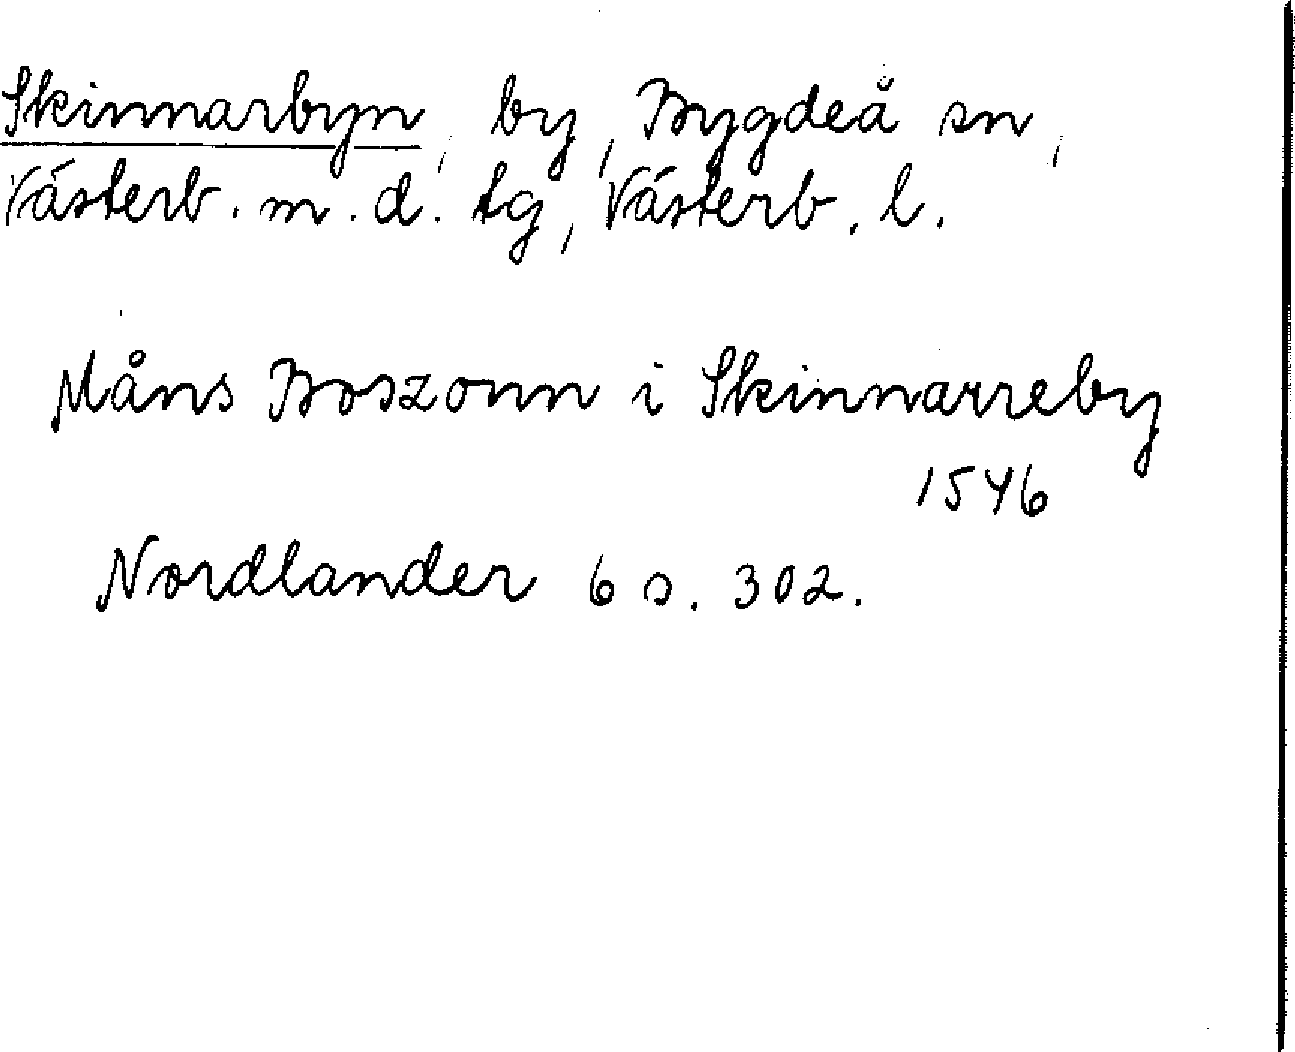 Skinnarbyn, by, Bygdeå sn,
Västerb. m. d. tg, Västerb. l.
Måns Boszonn i Skinnarreby
1546
Nordlander 6 s. 302.